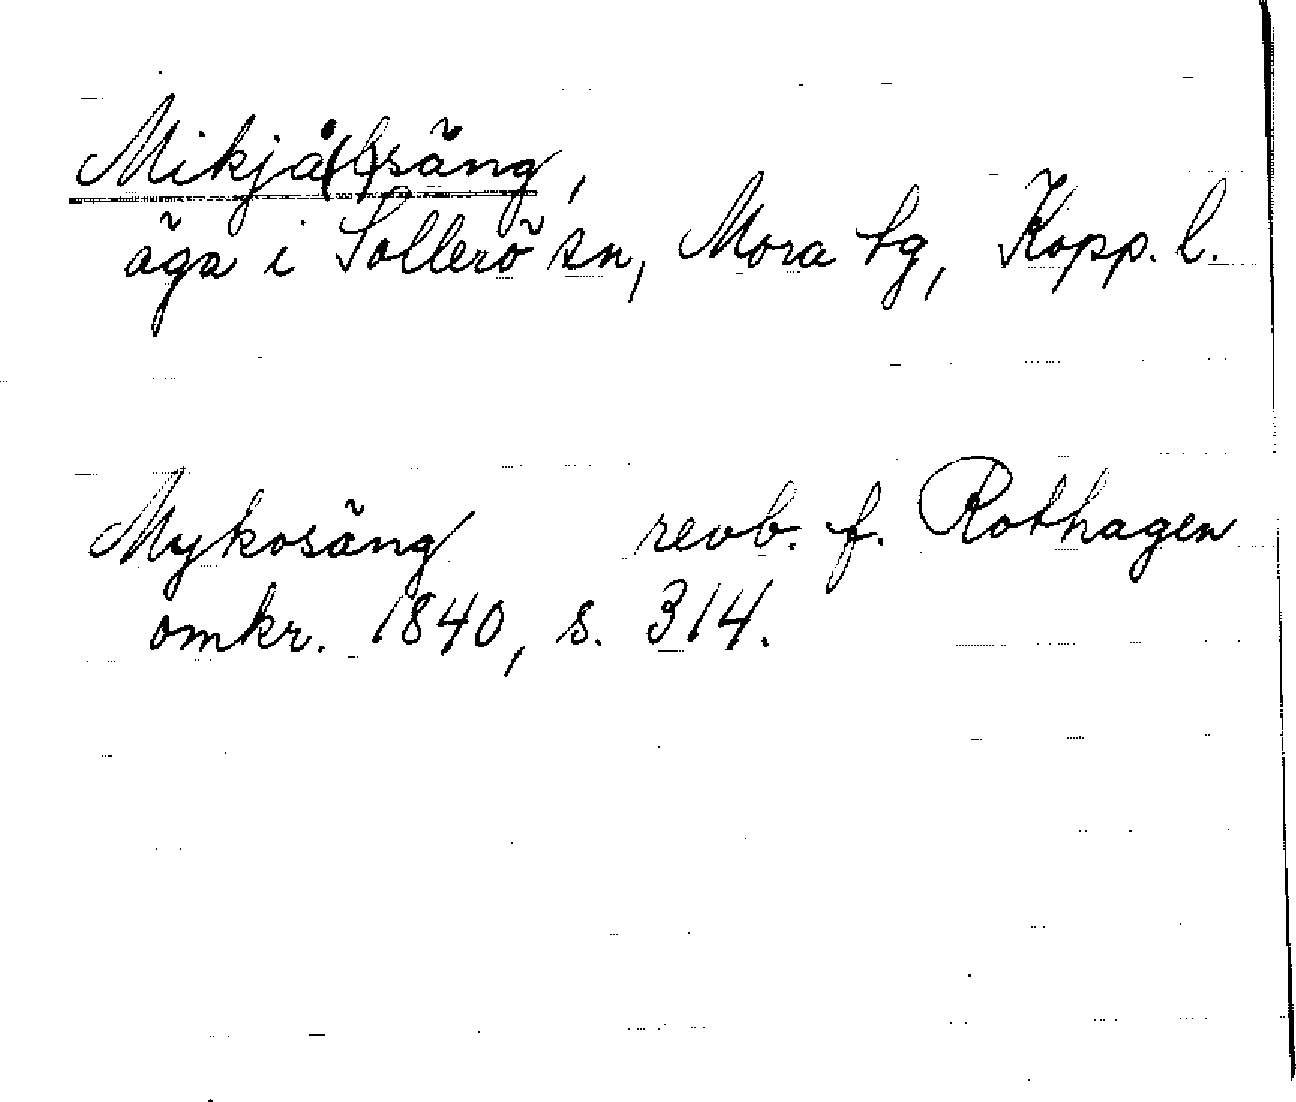 Mikjå(l)säng,
äga i Sollerö sn, Mora tg, Kopp. l.
Mykosäng revb. f. Rothagen
omkr. 1840, s. 314.